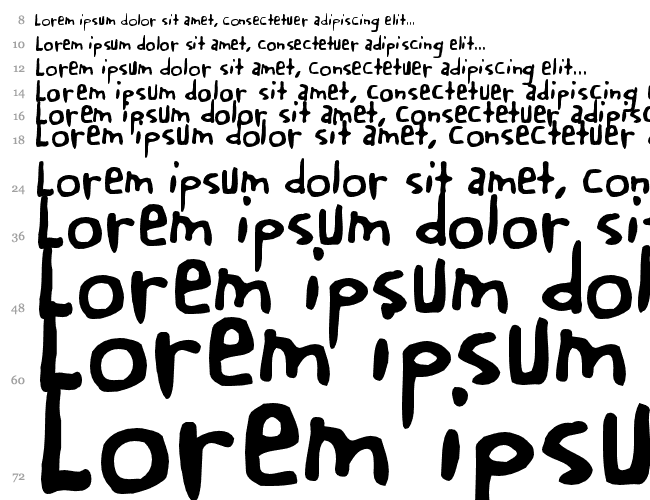 8 Lorem ipsum dolor sit amet, consectetuer adipiscing elit...
10 Lorem ipsum dolor sit amet, consectetuer adipiscing elit...
12 Lorem ipsum dolor sit amet, consectetuer adipiscing elit...
14 Lorem ipsum dolor sit amet, consectetuer adipiscing
16 Lorem ipsum dolor sit amet, consectetuer adipisc
18 Lorem ipsum dolor sit amet, consectetuer
24 Lorem ipsum dolor sit amet, con
36 Lorem ipsum dolor si
48 Lorem ipsum dol
60 Lorem ipsum
72 Lorem ipsu